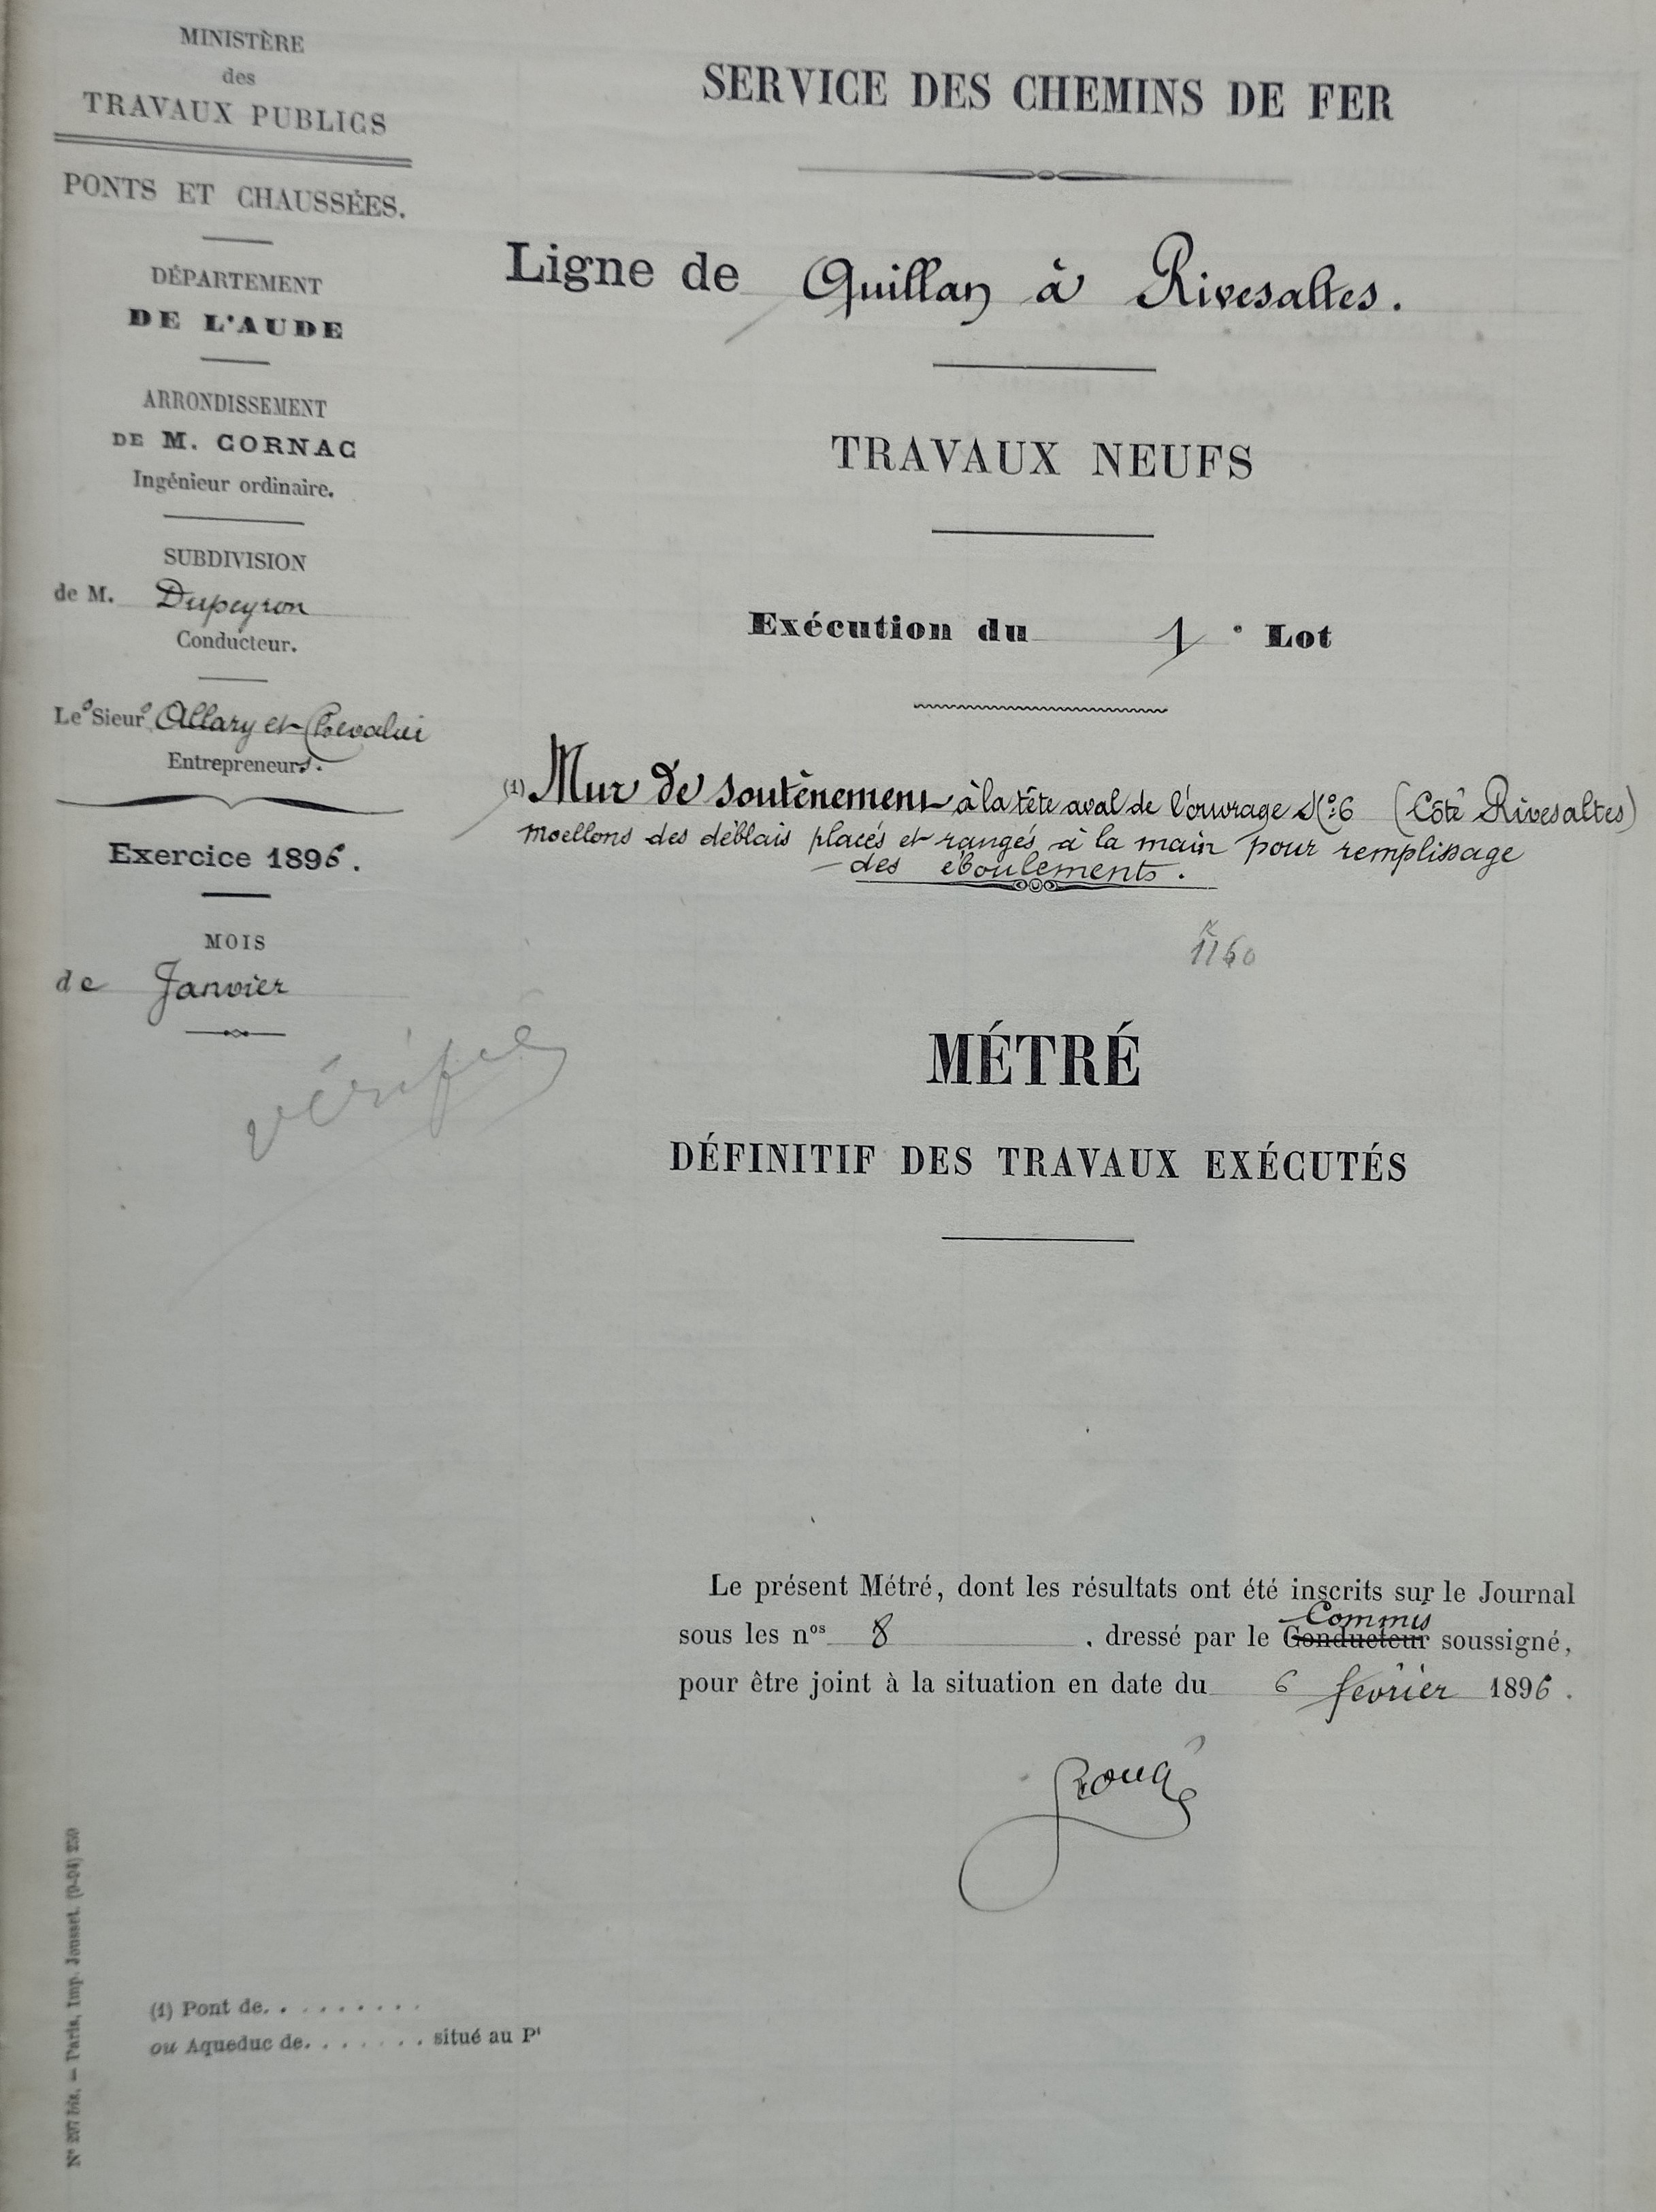 MINISTÈRE
des
TRAVAUX PUBLICS
PONTS ET CHAUSSÉES.
DÉPARTEMENT
DE L'AUDE
ARRONDISSEMENT
DE M. CORNAC
Ingénieur ordinaire.
SUBDIVISION
de M. Dupeyron
Conducteur.
Les Sieurs Allary et Chevalier
Entrepreneurs.
Exercice 1896.
MOIS
de Janvier
vérifié
SERVICE DES CHEMINS DE FER
Ligne de Quillan à Rivesaltes.
TRAVAUX NEUFS
Exécution du 1e Lot
(1) Mur de soutènement à la tête aval de l'ouvrage No 6 (Côté Rivesaltes)
Moellons des déblais placés et rangés à la main pour remplissage
des éboulements.
MÉTRÉ
DÉFINITIF DES TRAVAUX EXÉCUTÉS
Le présent Métré, dont les résultats ont été inscrits sur le Journal
Commis
sous les nos 8 , dressé par le Conducteur soussigné,
pour être joint à la situation en date du 6 février 1896.
(1) Pont de. . . . . . . . .
ou Aqueduc de. . . . . . . situé au Pt
N° 207 bis. — Paris, Imp. Jousset. (9-94) 250